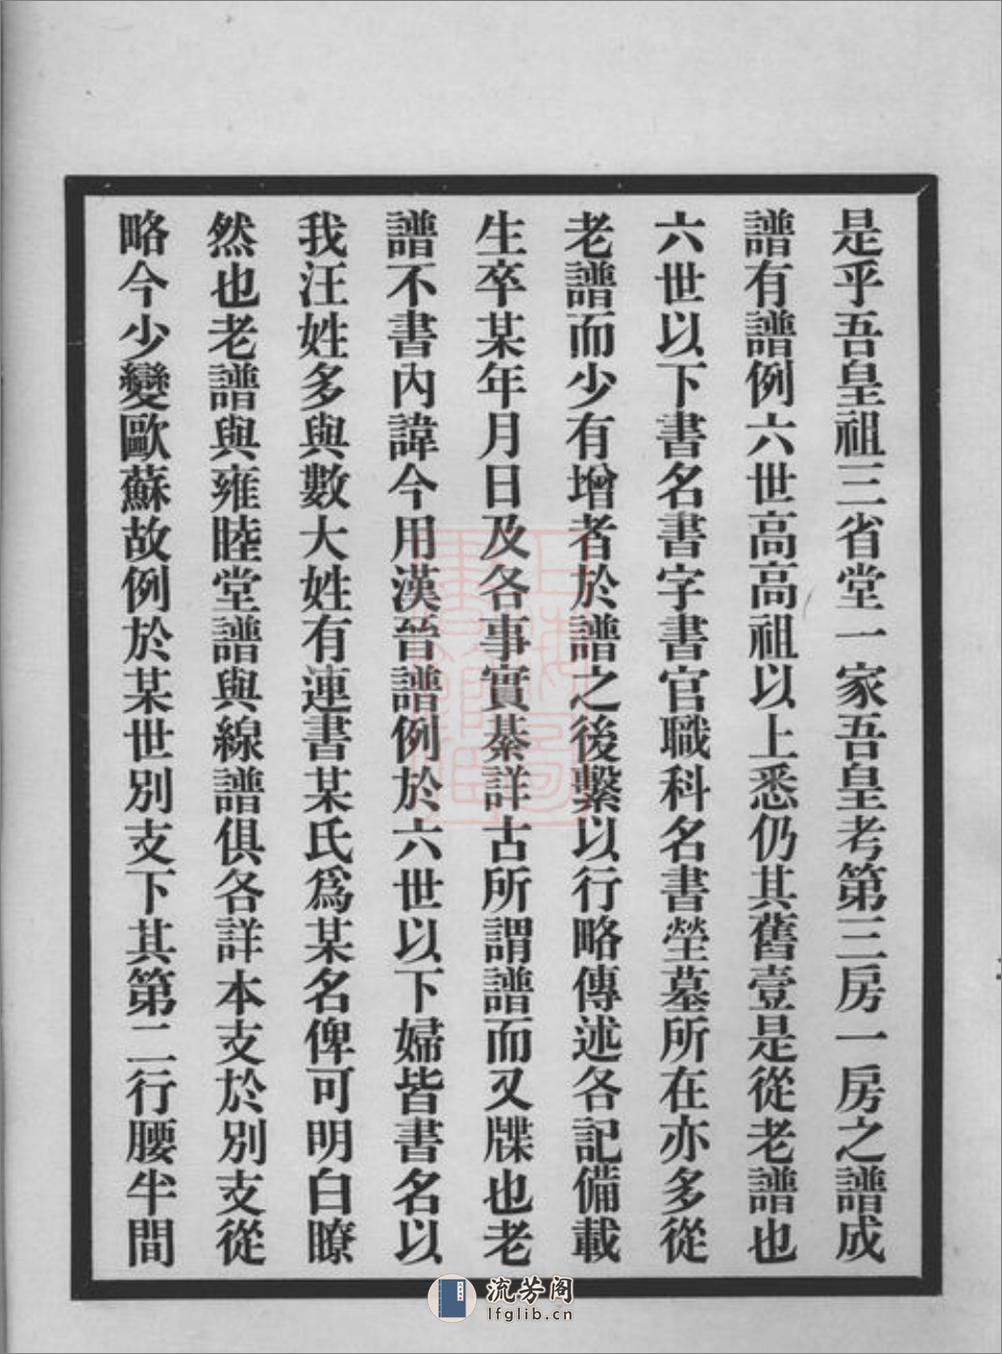 是乎吾皇祖三省堂一家吾皇考第三房一房之譜成
譜有譜例六世高高祖以上悉仍其舊壹是從老譜也
六世以下書名書字書官職科名書塋墓所在亦多從
老譜而少有增者於譜之後繫以行略傳述各記備載
生卒某年月日及各事實綦詳古所謂譜而又牒也老
譜不書內諱今用漢晉譜例於六世以下婦皆書名以
我汪姓多與數大姓有連書某氏爲某名俾可明白瞭
然也老譜與雍睦堂譜與線譜俱各詳本支於別支從
略今少變歐蘇故例於某世別支下其第二行腰半間
上海圖書館藏
流芳阁
lfglib.cn